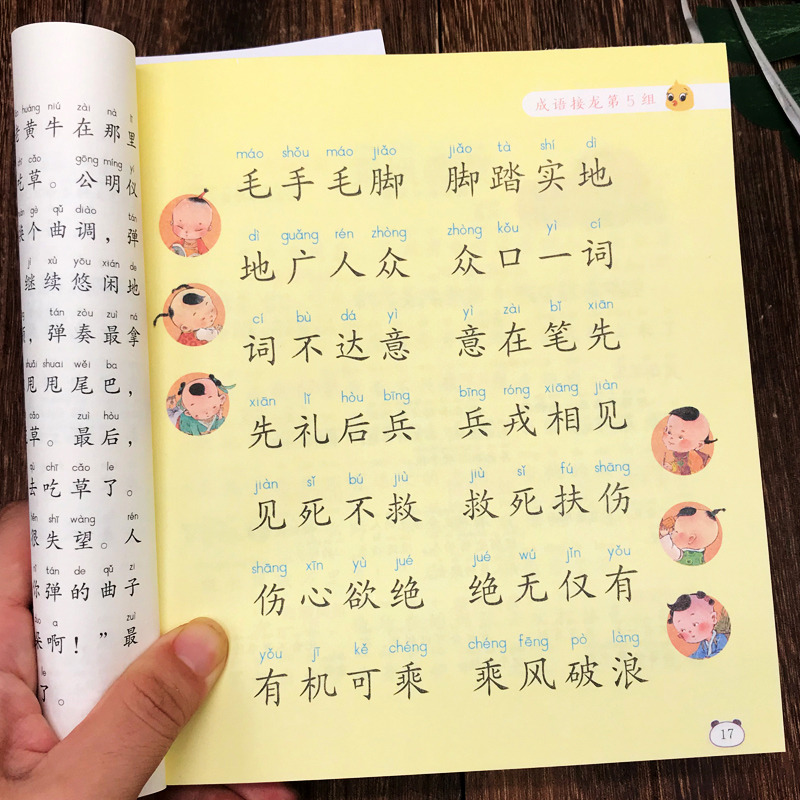 huáng niú zài nà
黄牛在那里
cǎo gōng míng yí
吃草。公明仪
gè qǔ diào tán
换个曲调，弹
jì xù yōu xián de
继续悠闲地
tán zòu zuì ná
，弹奏最拿
shuǎi shuai wěi ba
甩甩尾巴，
cǎo zuì hòu
草。最后，
qù chī cǎo le
去吃草了。
hěn shī wàng rén
很失望。人
nǐ tán de qǔ zi
你弹的曲子
a zuì
啊！”最
le
了。
成语接龙第5组
máo shǒu máo jiǎo jiǎo tà shí dì
毛手毛脚 脚踏实地
dì guǎng rén zhòng zhòng kǒu yì cí
地广人众 众口一词
cí bù dá yì yì zài bǐ xiān
词不达意 意在笔先
xiān lǐ hòu bīng bīng róng xiāng jiàn
先礼后兵 兵戎相见
jiàn sǐ bú jiù jiù sǐ fú shāng
见死不救 救死扶伤
shāng xīn yù jué jué wú jǐn yǒu
伤心欲绝 绝无仅有
yǒu jī kě chéng chéng fēng pò làng
有机可乘 乘风破浪
17